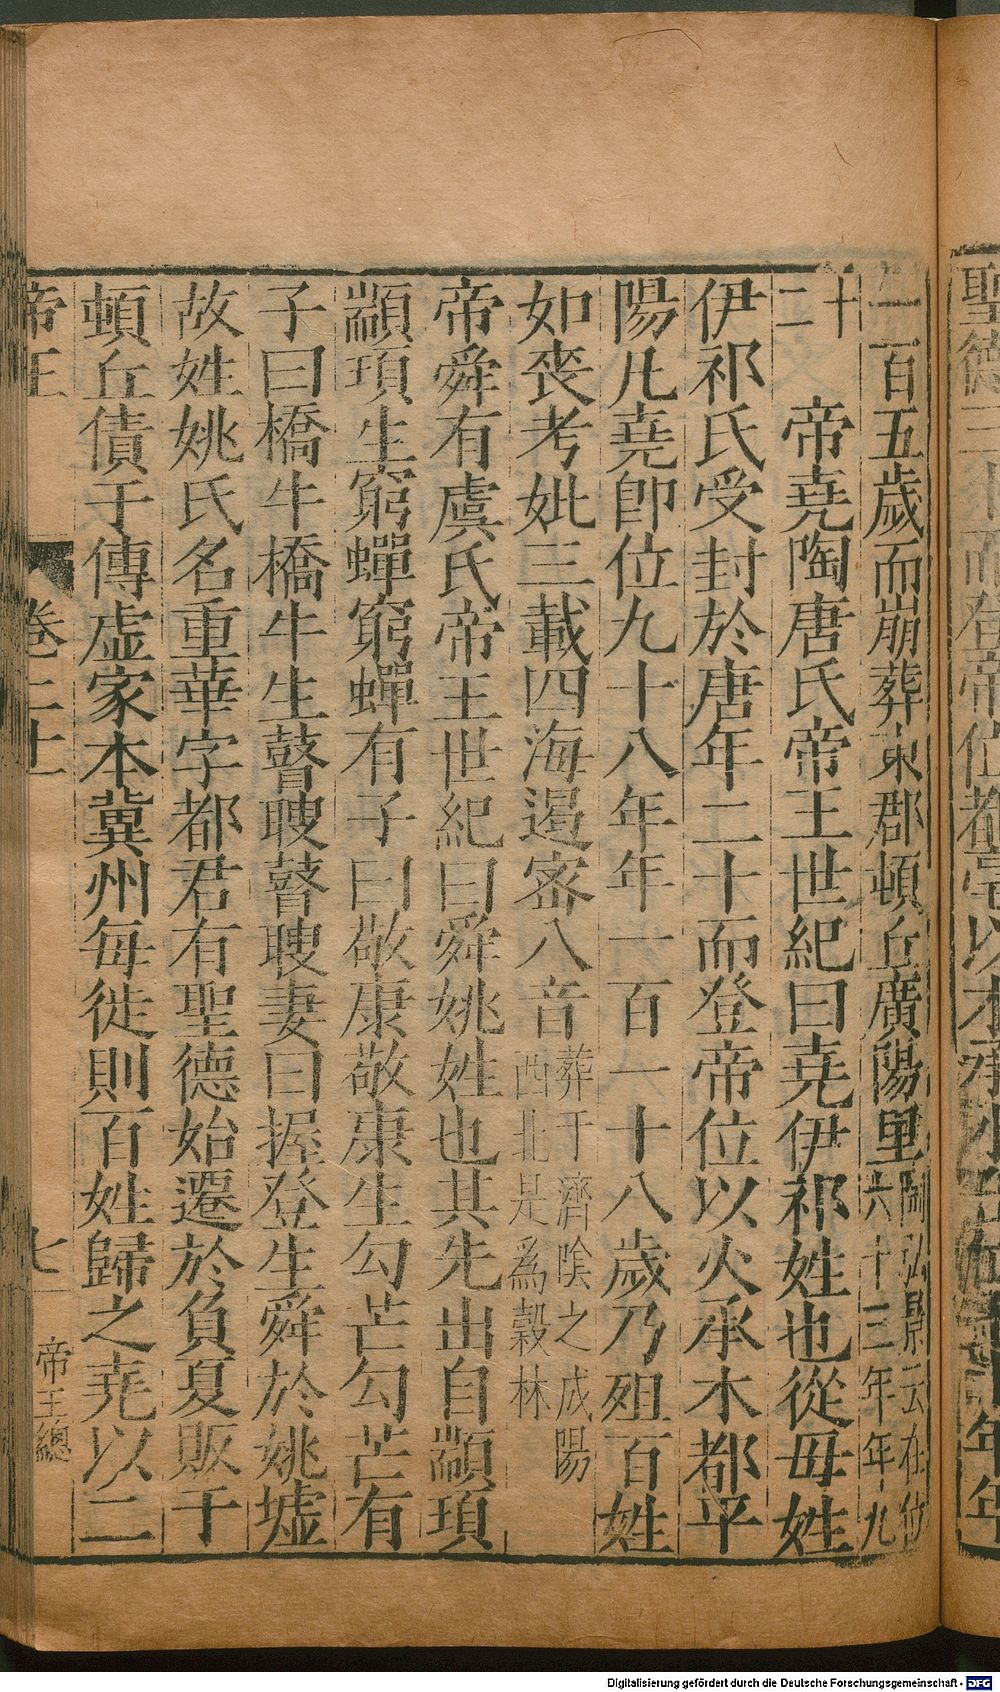 聖德三十而登帝位都亳以木承水
一百五歲而崩葬東郡頓丘廣陽里陶弘景云在位六十三年年九
十二
帝堯陶唐氏帝王世紀曰堯伊祁姓也從母姓
伊祁氏受封於唐年二十而登帝位以火承木都平
陽凡堯卽位九十八年年一百一十八歲乃殂百姓
如喪考妣三載四海遏密八音葬于濟陰之成陽西北是爲穀林
帝舜有虞氏帝王世紀曰舜姚姓也其先出自顓頊
顓頊生窮蟬窮蟬有子曰敬康敬康生勾芒勾芒有
子曰橋牛橋牛生瞽瞍瞽瞍妻曰握登生舜於姚墟
故姓姚氏名重華字都君有聖德始遷於負夏販于
頓丘債于傳虛家本冀州每徙則百姓歸之堯以二
帝王 卷二十 七 帝王總
Digitalisierung gefördert durch die Deutsche Forschungsgemeinschaft - DFG